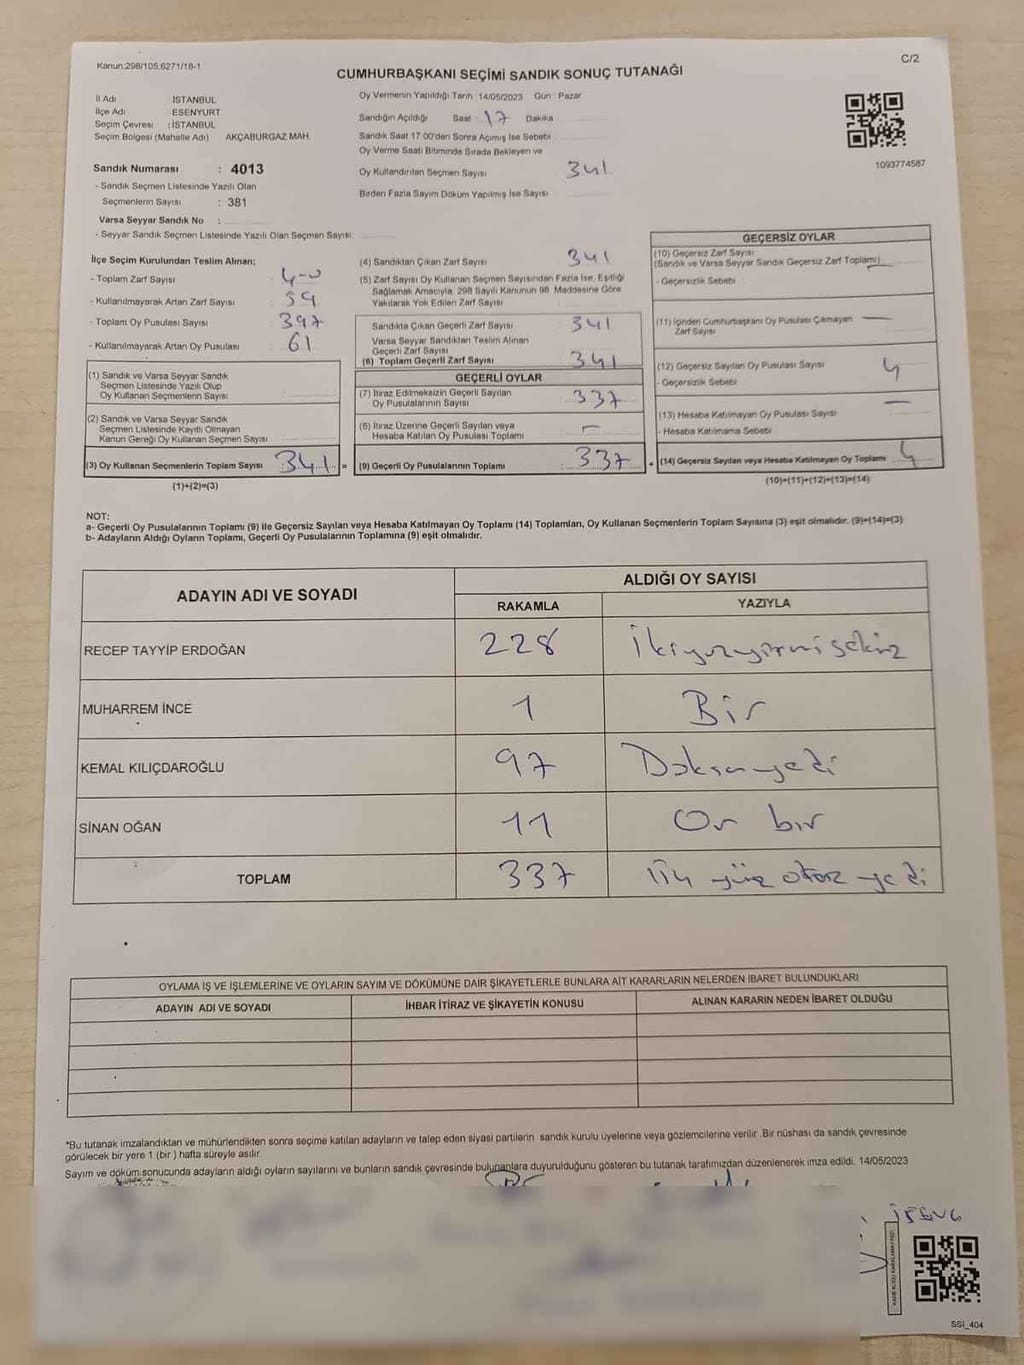 Kanun:298/105,6271/18-1
C/2
CUMHURBAŞKANI SEÇİMİ SANDIK SONUÇ TUTANAĞI
İl Adı İSTANBUL
İlçe Adı ESENYURT
Seçim Çevresi : İSTANBUL
Seçim Bölgesi (Mahalle Adı) AKÇABURGAZ MAH.
Sandık Numarası : 4013
- Sandık Seçmen Listesinde Yazılı Olan
Seçmenlerin Sayısı : 381
Varsa Seyyar Sandık No :
- Seyyar Sandık Seçmen Listesinde Yazılı Olan Seçmen Sayısı:
Oy Vermenin Yapıldığı Tarih : 14/05/2023 Gün : Pazar
Sandığın Açıldığı Saat 17 Dakika
Sandık Saat 17:00'den Sonra Açımış İse Sebebi
Oy Verme Saati Bitiminde Sırada Bekleyen ve
Oy Kullandırılan Seçmen Sayısı 341
Birden Fazla Sayım Döküm Yapılmış İse Sayısı
1093774587
İlçe Seçim Kurulundan Teslim Alınan;
- Toplam Zarf Sayısı
- Kullanılmayarak Artan Zarf Sayısı 59
- Toplam Oy Pusulası Sayısı 397
- Kullanılmayarak Artan Oy Pusulası 61
(1) Sandık ve Varsa Seyyar Sandık
Seçmen Listesinde Yazılı Olup
Oy Kullanan Seçmenlerin Sayısı
(2) Sandık ve Varsa Seyyar Sandık
Seçmen Listesinde Kayıtlı Olmayan
Kanun Gereği Oy Kullanan Seçmen Sayısı
(3) Oy Kullanan Seçmenlerin Toplam Sayısı 341 =
(1)+(2)=(3)
(4) Sandıktan Çıkan Zarf Sayısı 341
(5) Zarf Sayısı Oy Kullanan Seçmen Sayısından Fazla İse, Eşitliği
Sağlamak Amacıyla, 298 Sayılı Kanunun 98. Maddesine Göre
Yakılarak Yok Edilen Zarf Sayısı
Sandıkta Çıkan Geçerli Zarf Sayısı 341
Varsa Seyyar Sandıktan Teslim Alınan
Geçerli Zarf Sayısı
(6) Toplam Geçerli Zarf Sayısı 341
GEÇERLİ OYLAR
(7) İtiraz Edilmeksizin Geçerli Sayılan
Oy Pusulalarının Sayısı 337
(8) İtiraz Üzerine Geçerli Sayılan veya
Hesaba Katılan Oy Pusulası Toplamı –
(9) Geçerli Oy Pusulalarının Toplamı 337 +
GEÇERSİZ OYLAR
(10) Geçersiz Zarf Sayısı
(Sandık ve Varsa Seyyar Sandık Geçersiz Zarf Toplamı) —
- Geçersizlik Sebebi
(11) İçinden Cumhurbaşkanı Oy Pusulası Çıkmayan —
Zarf Sayısı
(12) Geçersiz Sayılan Oy Pusulası Sayısı 4
- Geçersizlik Sebebi
(13) Hesaba Katılmayan Oy Pusulası Sayısı —
- Hesaba Katılmama Sebebi
(14) Geçersiz Sayılan veya Hesaba Katılmayan Oy Toplamı 4
(10)+(11)+(12)+(13)=(14)
NOT:
a- Geçerli Oy Pusulalarının Toplamı (9) ile Geçersiz Sayılan veya Hesaba Katılmayan Oy Toplamı (14) Toplamları, Oy Kullanan Seçmenlerin Toplam Sayısına (3) eşit olmalıdır. (9)+(14)=(3)
b- Adayların Aldığı Oyların Toplamı, Geçerli Oy Pusulalarının Toplamına (9) eşit olmalıdır.
ADAYIN ADI VE SOYADI
ALDIĞI OY SAYISI
RAKAMLA YAZIYLA
RECEP TAYYİP ERDOĞAN 228 İkiyüzyirmisekiz
MUHARREM İNCE 1 Bir
KEMAL KILIÇDAROĞLU 97 Doksanyedi
SİNAN OĞAN 11 On bir
TOPLAM 337 yüz otuz yedi
OYLAMA İŞ VE İŞLEMLERİNE VE OYLARIN SAYIM VE DÖKÜMÜNE DAİR ŞİKAYETLERLE BUNLARA AİT KARARLARIN NELERDEN İBARET BULUNDUKLARI
ADAYIN ADI VE SOYADI İHBAR İTİRAZ VE ŞİKAYETİN KONUSU ALINAN KARARIN NEDEN İBARET OLDUĞU
*Bu tutanak imzalandıktan ve mühürlendikten sonra seçime katılan adayların ve talep eden siyasi partilerin sandık kurulu üyelerine veya gözlemcilerine verilir. Bir nüshası da sandık çevresinde
görülecek bir yere 1 (bir) hafta süreyle asılır.
Sayım ve döküm sonucunda adayların aldığı oyların sayılarını ve bunların sandık çevresinde bulunanlara duyurulduğunu gösteren bu tutanak tarafımızdan düzenlenerek imza edildi. 14/05/2023
SSI_404